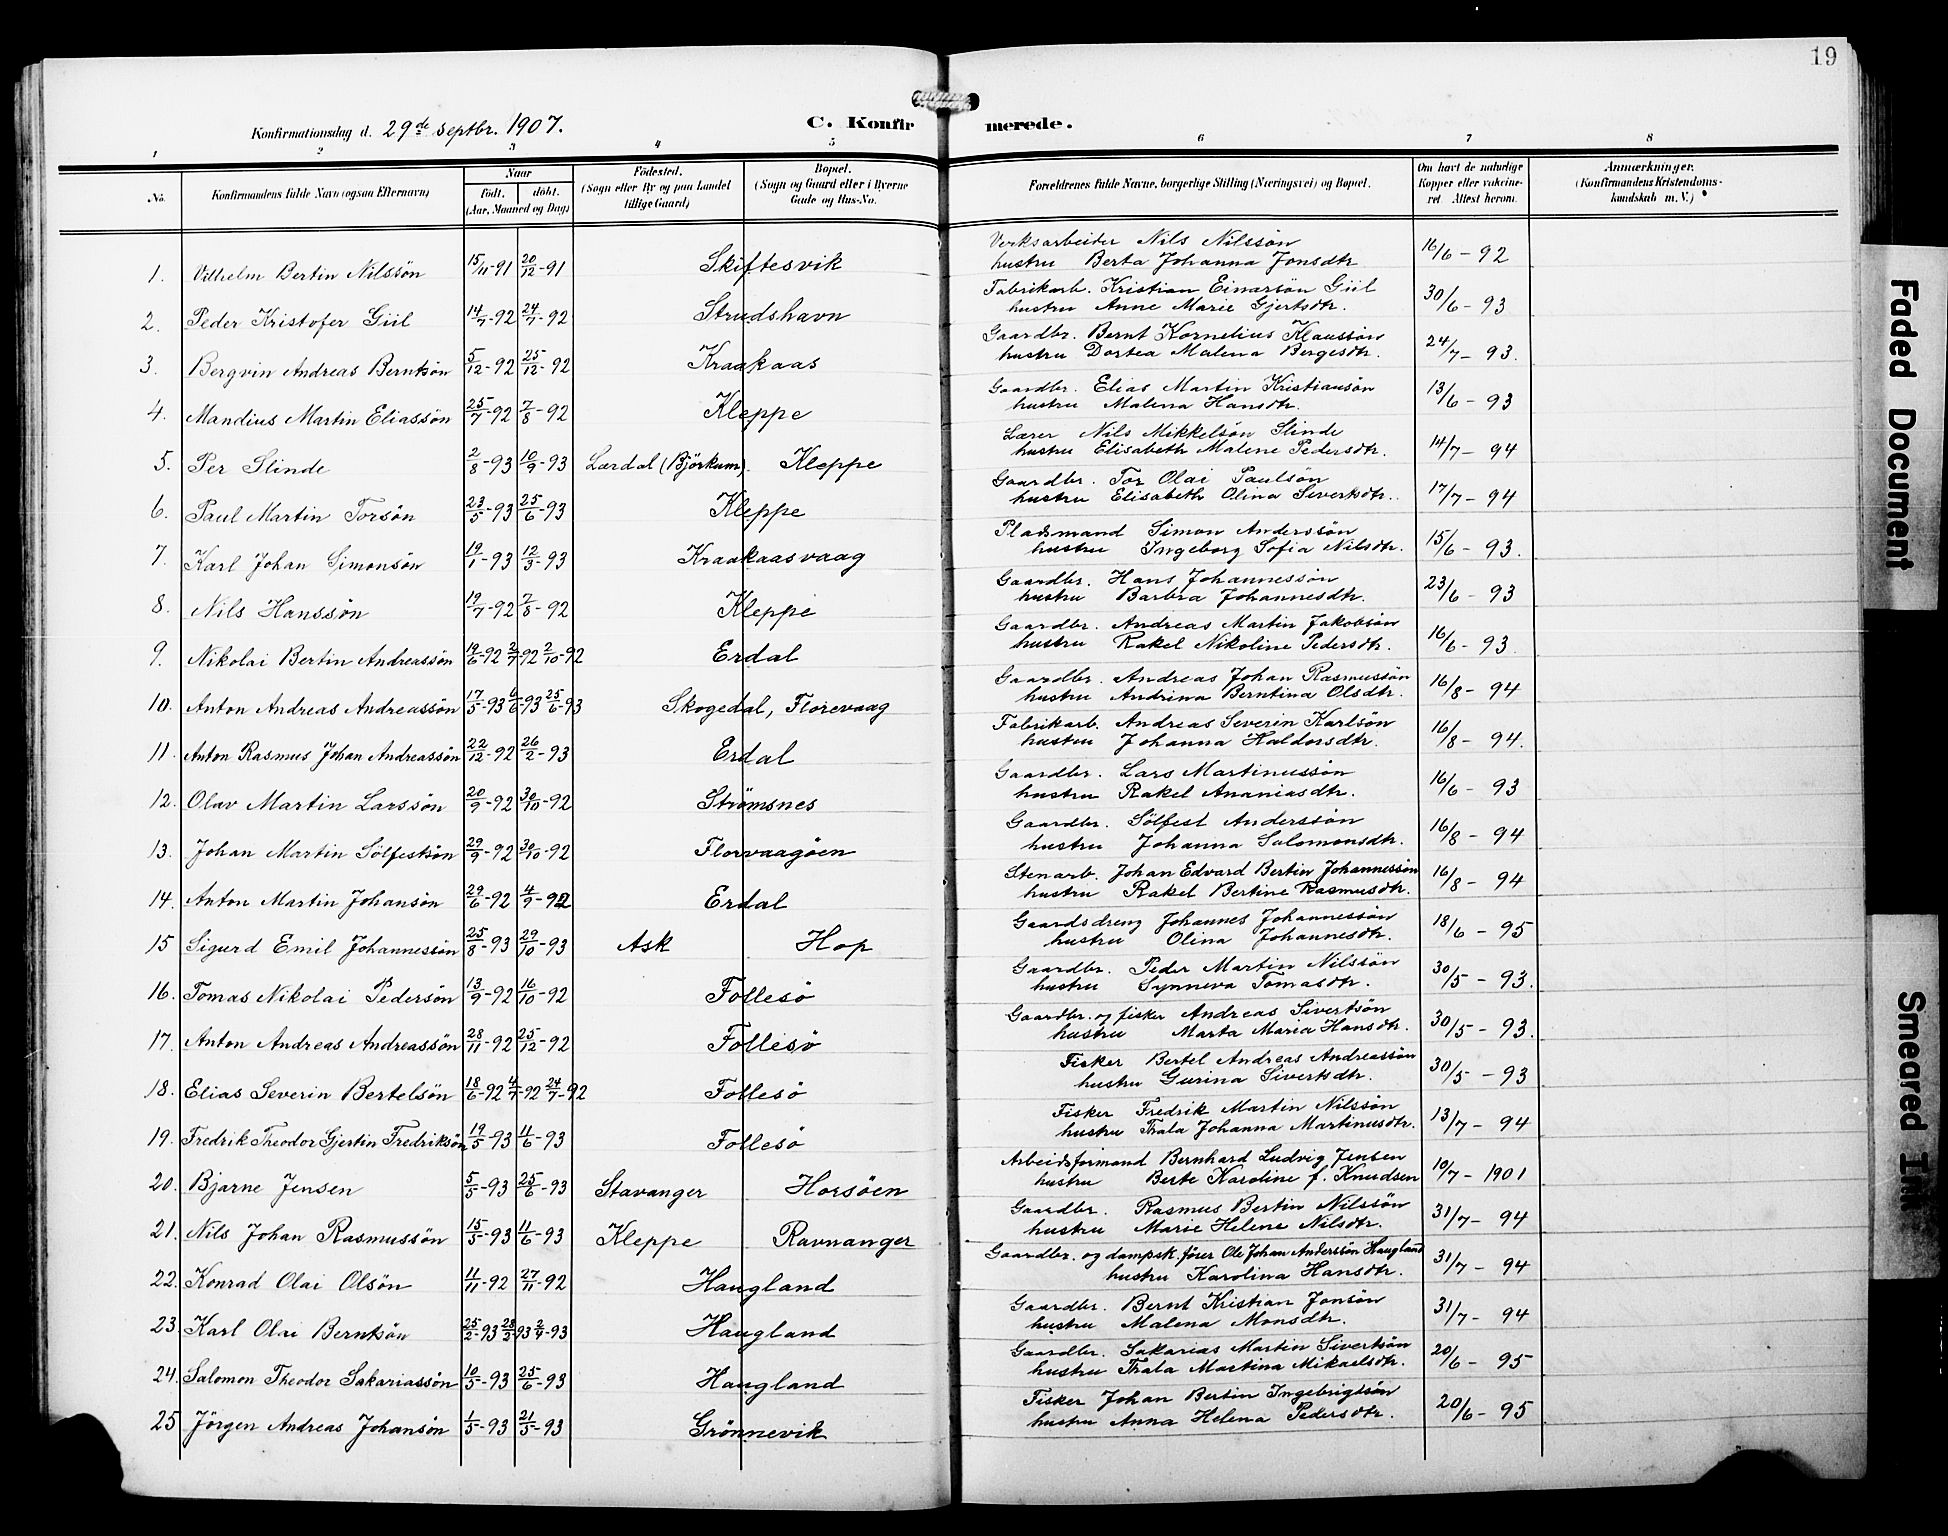 19
Konfirmationsdag d. 29de septbr. 1907.
C. Konfirmerede.
1 2 3 4 5 6 7 8
No.
Konfirmandens fulde Navn (ogsaa Efternavn)
Naar
födt. döbt.
(Aar, Maaned og Dag)
Födested.
(Sogn eller By og paa Landet
tillige Gaard)
Bopæl.
(Sogn og Gaard eller i Byerne
Gade og Hus-No.
Forældrenes fulde Navne, borgerlige Stilling (Næringsvei) og Bopæl.
Om havt de naturlige
Kopper eller vakcine-
ret. Attest herom.
Anmærkninger.
(Konfirmandens Kristendoms-
kundskab m. V.)
1. Vilhelm Bertin Nilssön 15/11-91 20/12-91 Skiftesvik Verksarbeider Nils Nilssön 16/6-92
hustru Berta Johanna Jonsdtr
2. Peder Kristofer Giil 14/7-92 24/7-92 Strudshavn Fabrikarb. Kristian Einarsön Giil 30/6-93
hustru Anne Marie Gjertsdtr.
3. Bergvin Andreas Berntsön 5/12-92 25/12-92 Kraakaas Gaardbr. Bernt Kornelius Klaussön 24/7-93.
hustru Dortea Malena Bergesdtr.
4. Mandius Martin Eliassön 25/7-92 7/8-92 Kleppe Gaardbr. Elias Martin Kristiansön 13/6-93
hustru Malena Hansdtr.
5. Per Slinde 2/8-93 10/9-93 Lærdal (Björkum). Kleppe Lærer Nils Mikkelsön Slinde 14/7-94
hustru Elisabeth Malene Pedersdtr.
6. Paul Martin Torsön 23/5-93 25/6-93 Kleppe Gaardbr. Tor Olai Paulsön 17/7-94
hustru Elisabeth Olina Sivertsdtr.
7. Karl Johan Simonsön 19/1-93 12/3-93 Kraakaasvaag Pladsmand Simon Anderssön 15/6-93.
hustru Ingeborg Sofia Nilsdtr.
8. Nils Hanssön 19/7-92 7/8-92 Kleppe Gaardbr. Hans Johannessön 23/6-93
hustru Barbra Johannesdtr.
9. Nikolai Bertin Andreassön 19/6-92 2/7-92 2/10-92 Erdal Gaardbr. Andreas Martin Jakobsön 16/6-93.
hustru Rakel Nikoline Pedersdtr.
10. Anton Andreas Andreassön 17/5-93 6/6-93 25/6-93 Skogedal, Florevaag Gaardbr. Andreas Johan Rasmussön 16/8-94
hustru Andrina Berntina Olsdtr.
11. Anton Rasmus Johan Andreassön 22/12-92 26/2-93 Erdal Fabrikarb. Andreas Severin Karlsön 16/8-94.
hustru Johanna Haldorsdtr.
12. Olav Martin Larssön 20/9-92 30/10-92 Strömsnes Gaardbr. Lars Martinussön 16/6-93
hustru Rakel Ananiasdtr.
13. Johan Martin Sölfestsön 29/9-92 30/10-92 Florvaagöen Gaardbr. Sölfest Anderssön 16/8-94
hustru Johanna Salomonsdtr.
14. Anton Martin Johansön 29/6-92 4/9-92 Erdal Stenarb. Johan Edvard Bertin Johannessön 16/8-94
hustru Rakel Bertine Rasmusdtr.
15 Sigurd Emil Johannessön 25/8-93 29/10-93 Ask Hop Gaardsdreng Johannes Johannessön 18/6-95
hustru Olina Johannesdtr.
16. Tomas Nikolai Pedersön 13/9-92 16/10-92 Follesö Gaardbr. Peder Martin Nilssön 30/5-93.
hustru Synneva Tomasdtr.
17. Anton Andreas Andreassön 28/11-92 25/12-92 Follesö Gaardbr. og fisker Andreas Sivertsön 30/5-93.
hustru Marta Maria Hansdtr.
18. Elias Severin Bertelsön 18/6-92 4/7-92 24/7-92 Follesö Fisker Bertel Andreas Andreassön 30/5-93
hustru Gurina Sivertsdtr.
19. Fredrik Theodor Gjertin Fredriksön 19/5-93 11/6-93 Follesö Fisker Fredrik Martin Nilssön 13/7-94
hustru Thala Johanna Martinusdtr.
20. Bjarne Jensen 5/5-93 25/6-93 Stavanger Horsöen Arbeidsformand Bernhard Ludvig Jensen 10/7-1901
hustru Berte Karoline f. Knudsen
21. Nils Johan Rasmussön 15/5-93 11/6-93 Kleppe Ravnanger Gaardbr. Rasmus Bertin Nilssön 31/7-94
hustru Marie Helene Nilsdtr.
22. Konrad Olai Olsön 11/11-92 27/11-92 Haugland Gaardbr. og dampsk.förer Ole Johan Anderssön Haugland 31/7-94
hustru Karolina Hansdtr.
23. Karl Olai Berntsön 25/2-93 28/2-93 2/4-93 Haugland Gaardbr. Bernt Kristian Jonsön 31/7-94
hustru Malena Monsdtr.
24. Salomon Theodor Sakariassön 10/5-93 25/6-93 Haugland Gaardbr. Sakarias Martin Sivertsön 20/6-95
hustru Thala Martina Mikaelsdtr.
25 Jörgen Andreas Johansön 1/5-93 21/5-93 Grönnevik Fisker Johan Bertin Ingebrigtsön 20/6-95
hustru Anna Helena Pedersdtr.
Faded Document
Smeared Ink